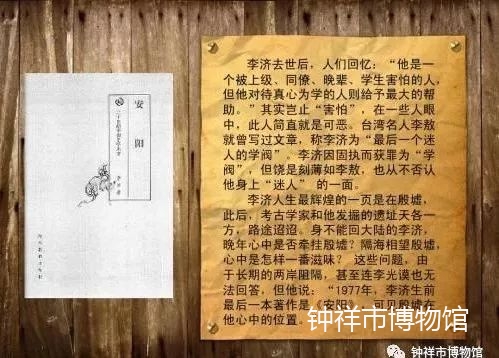 安
阳
二十世纪中国史学名著
李济 著
河北教育出版社
李济去世后，人们回忆：“他是一
个被上级、同僚、晚辈、学生害怕的人，
但他对待真心为学的人则给予最大的帮
助。”其实岂止“害怕”，在一些人眼
中，此人简直就是可恶。台湾名人李敖
就曾写过文章，称李济为“最后一个迷
人的学阀”。李济因固执而获罪为“学
阀”，但饶是刻薄如李敖，也从不否认
他身上“迷人” 的一面。
李济人生最辉煌的一页是在殷墟，
此后，考古学家和他发掘的遗址天各一
方，路途迢迢。身不能回大陆的李济，
晚年心中是否牵挂殷墟？隔海相望殷墟，
心中是怎样一番滋味？ 这些问题，由
于长期的两岸阻隔，甚至连李光谟也无
法回答，但他说：“1977年，李济生前
最后一本著作是《安阳》，可见殷墟在
他心中的位置。”
钟祥市博物馆
钟祥市博物馆